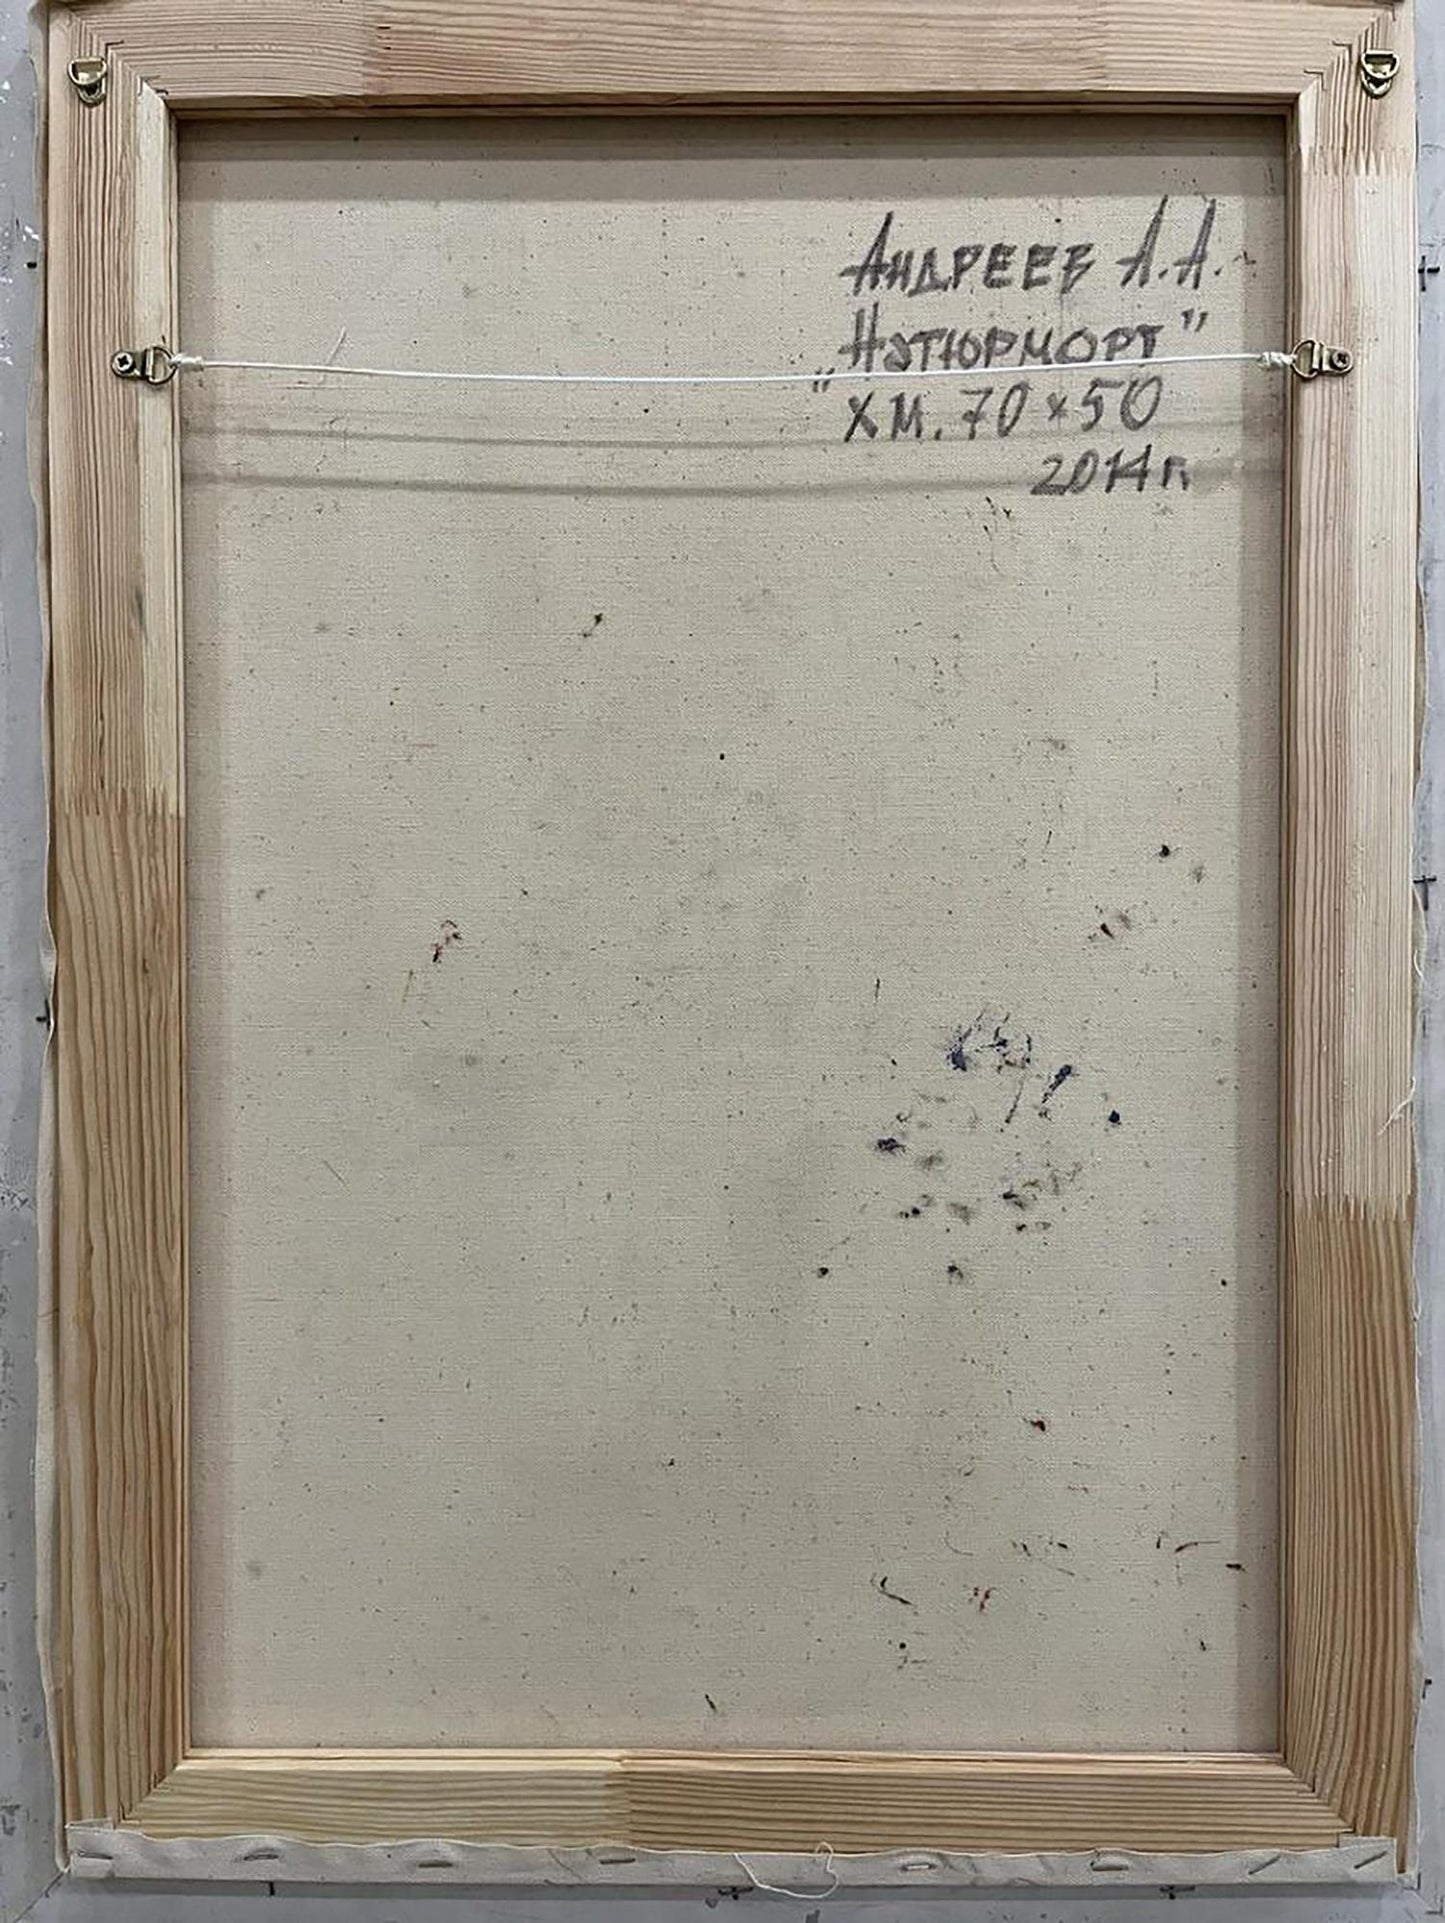 Андреев А.А.
"Натюрморт"
х м. 70 × 50
2014 г.